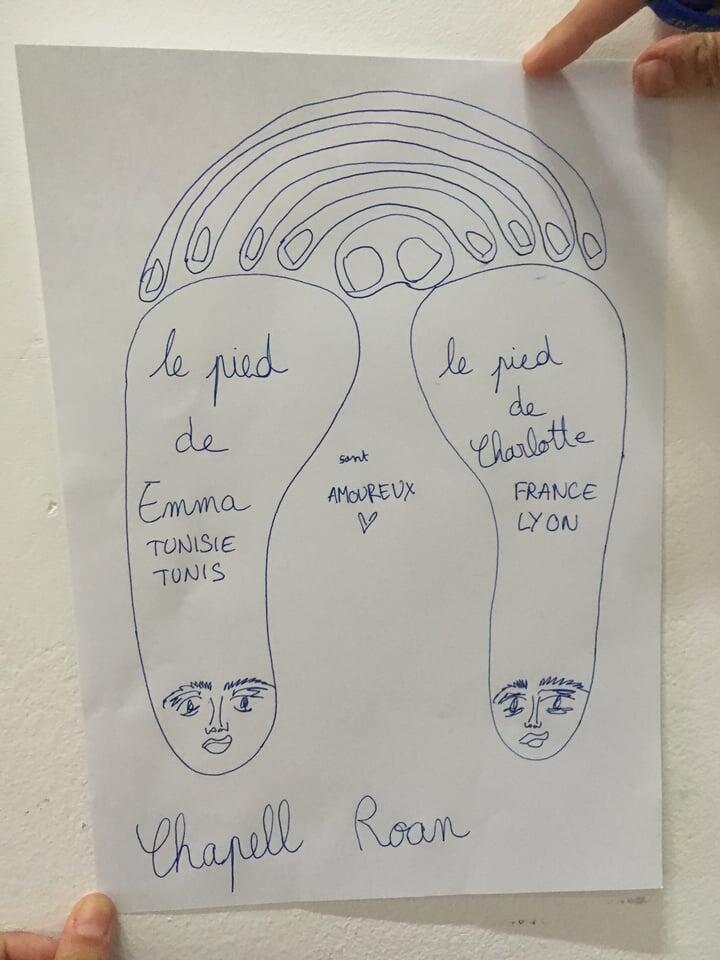 le pied
de
Emma
TUNISIE
TUNIS
sont
AMOUREUX
le pied
de
Charlotte
FRANCE
LYON
Chapell Roan